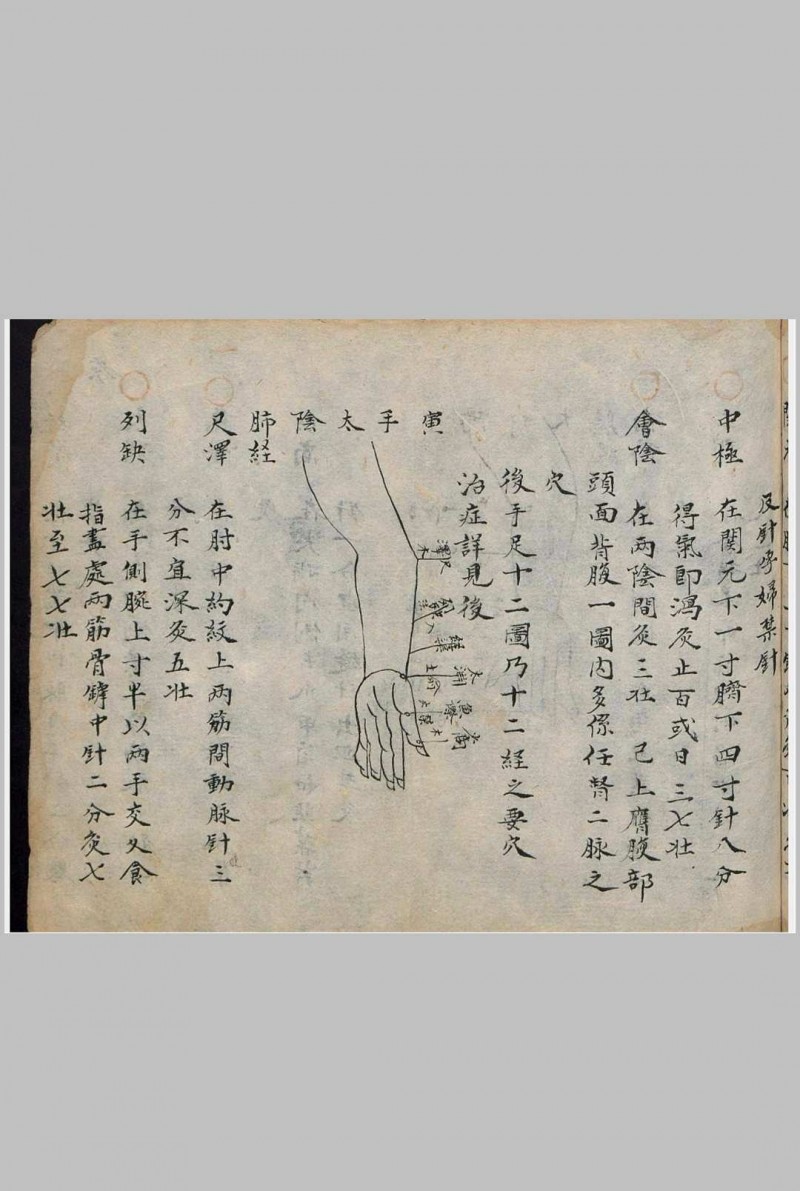 反針孕婦禁針
中極 在関元下一寸臍下四寸針八分
得氣即瀉灸止百或日三七壮
會陰 在兩陰間灸三壮 已上膺腹部
頭面背腹一圖内多係任督二脉之
穴
後手足十二圖乃十二経之要穴
治症詳見後
寅手太陰
肺経
尺澤
列缺
経渠
太淵
魚際
少商
尺澤 在肘中約紋上两筋間動脉針三
分不宜深灸五壮
列缺 在手側腕上寸半以两手交叉食
指盡處两筋骨罅中針二分灸七
壮至七七壮